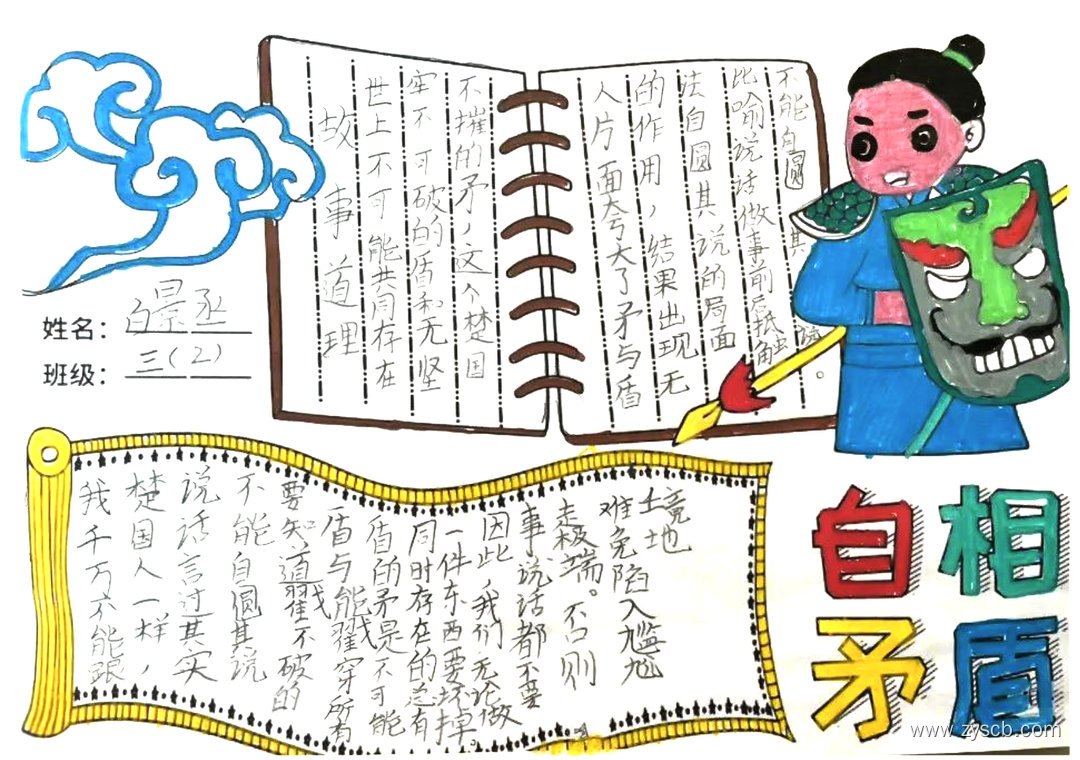 自相
矛盾
姓名：白景丞
班级：三（2）
故事道理
世上不可能共同存在
牢不可破的盾和无坚
不摧的矛，这个楚国
人片面夸大了矛与盾
的作用，结果出现无
法自圆其说的局面
比喻说话做事前后抵触
不能自圆其。
我千万不能跟
楚国人一样，
说话言过其实
不能自圆其说
要知道戳不破的
盾与能戳穿所有
盾的矛是不可能
同时存在的总有
一件东西要坏掉。
因此，我们无论做
事说话都不要
走极端。不口则
难免陷入尴尬
境地
www.zyscb.com